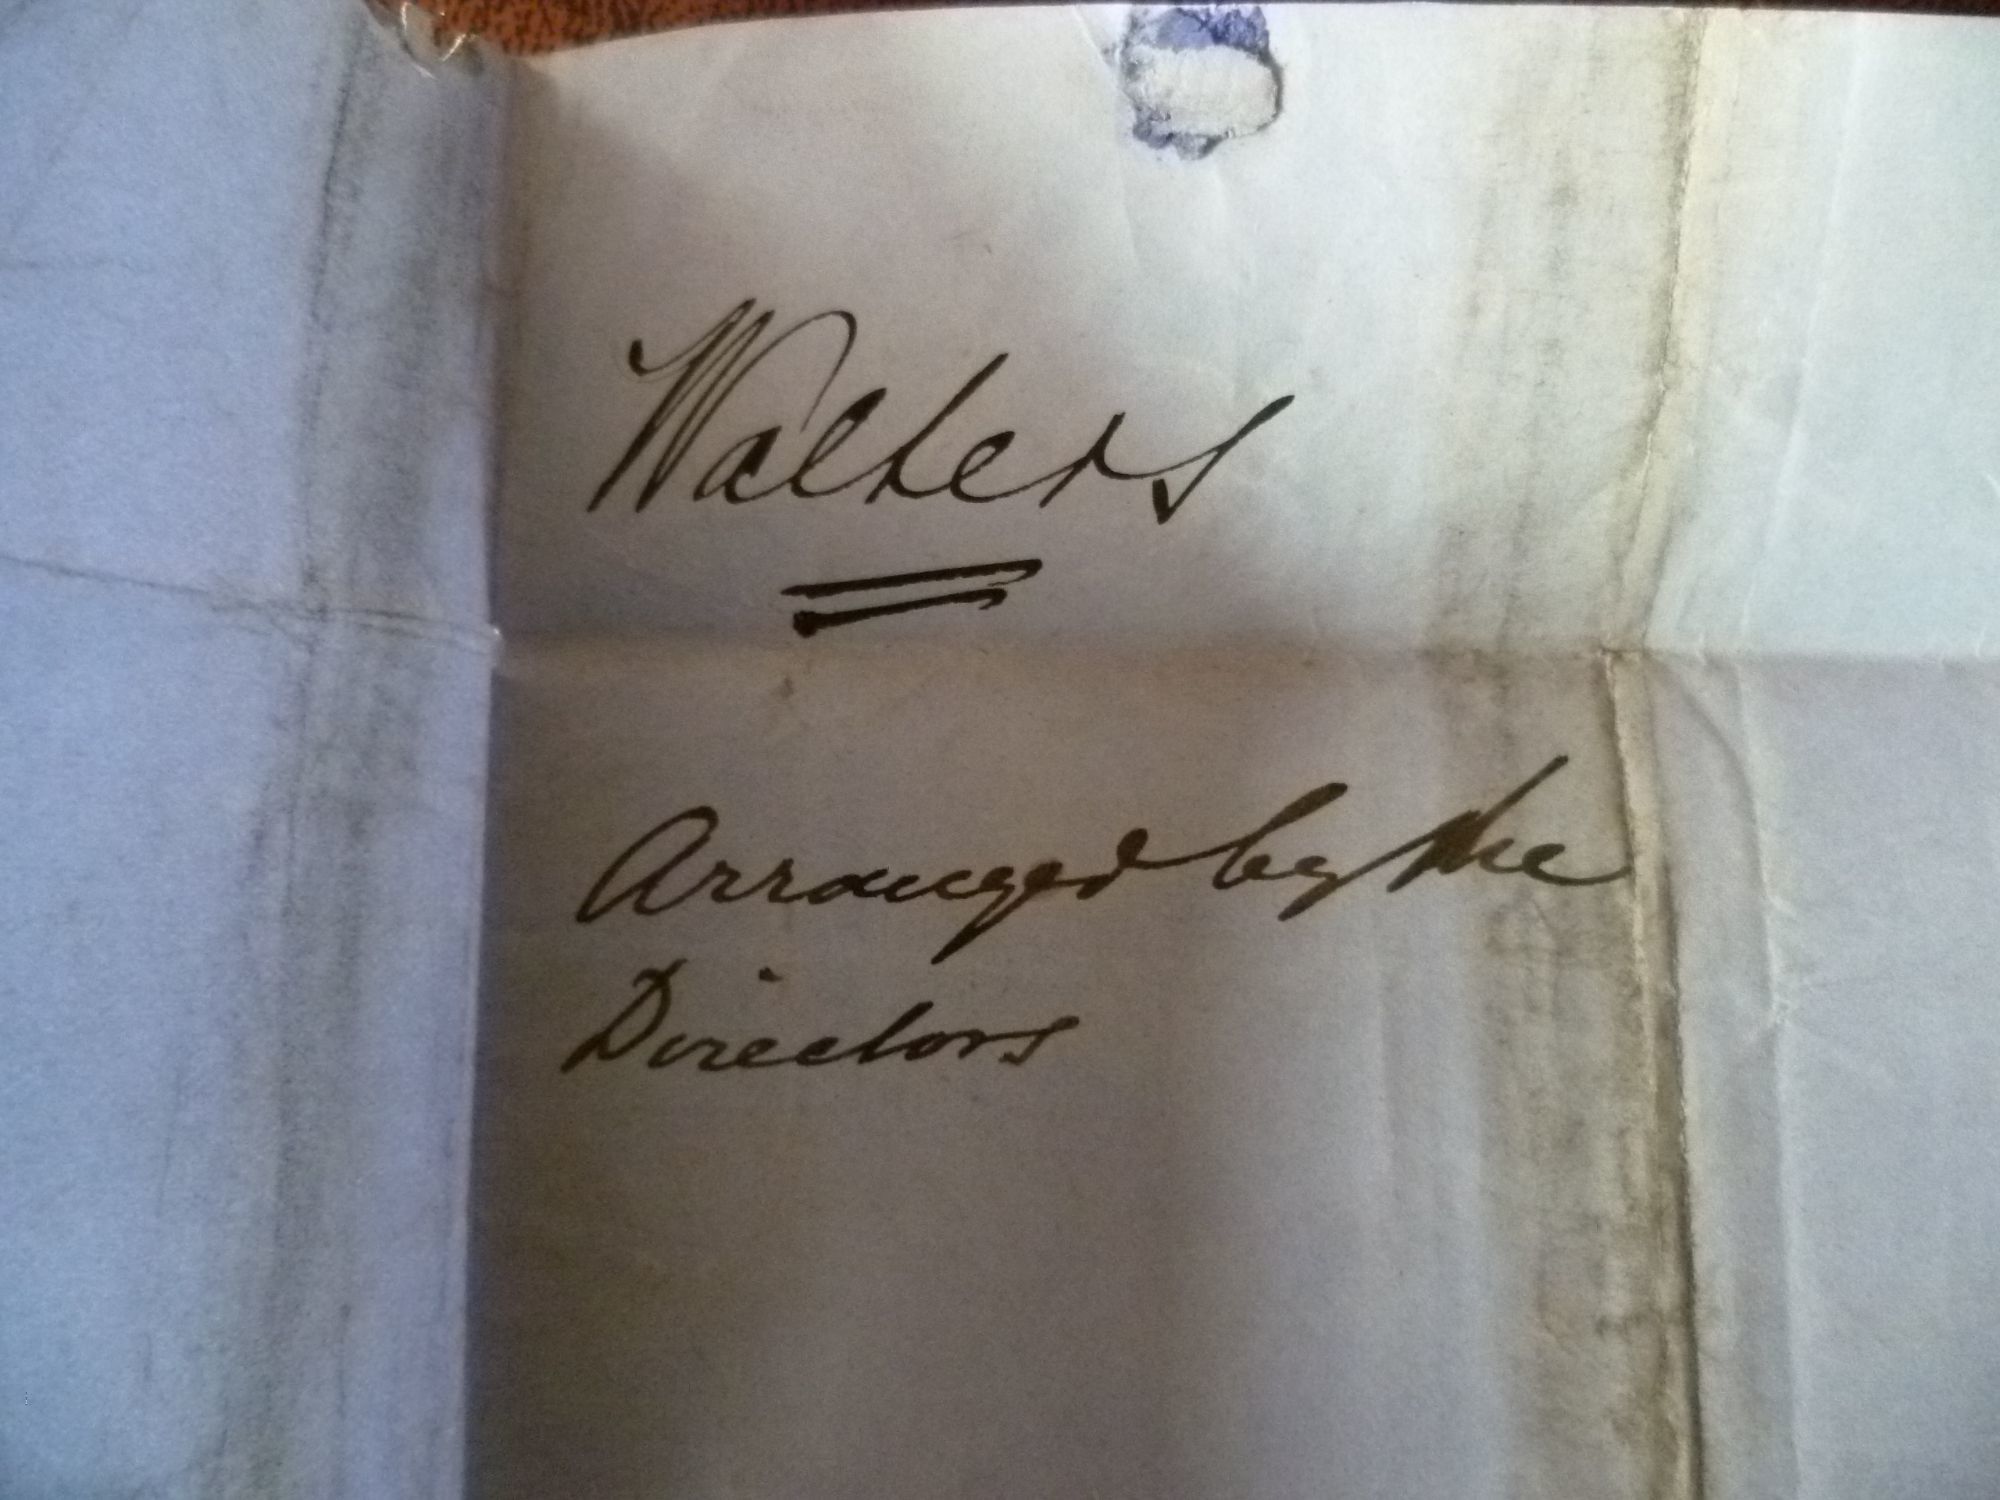 Walters
Arranged by the
Directors